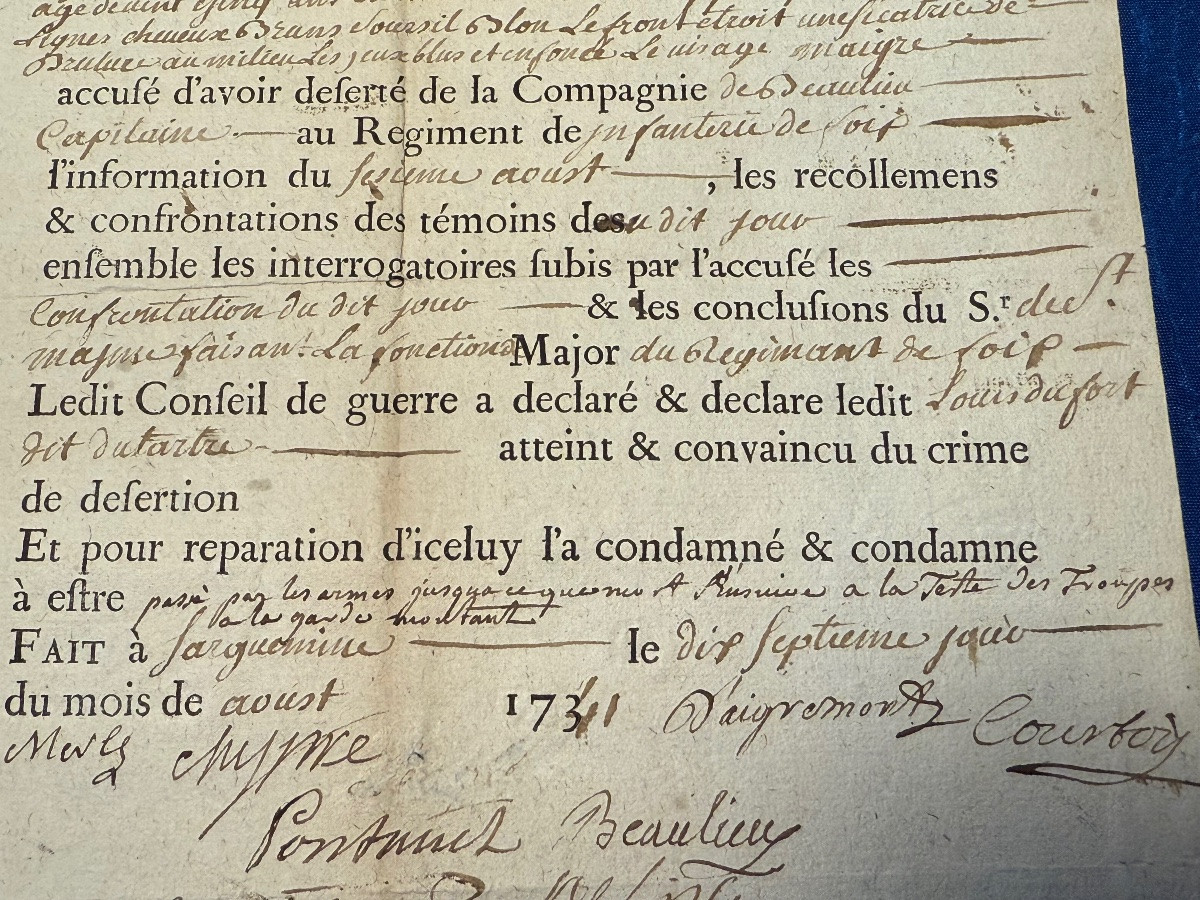 agé de vint esinq ans
Lignes cheueux Bruns Soursil Blon Le front etroit une sicatrice de
Brulure au milieu Les jeux blus et enfonce Le uisage maigre
accuſé d'avoir deſerté de la Compagnie de Beaulieu
Capitaine au Regiment de jnfanterie de foix
l'information du sesieme aoust , les recôllemens
& confrontations des témoins des u dit jour
enſemble les interrogatoires ſubis par l'accuſé les
Confrontation du dit jour & les concluſions du S.r de St
majme faisant La fonction de Major du Regimant de foix
Ledit Conſeil de guerre a declaré & declare ledit Louis dufort
dit dutartre atteint & convaincu du crime
de deſertion
Et pour reparation d'iceluy l'a condamné & condamne
à eſtre passé par les armes jusqua ce que mort Ensuive a la Teste des Trouppes
a la garde montant
FAIT à Sarguemine le dix septieme jour
du mois de aoust 1741 D'aigremont Courbois
Beaulieu